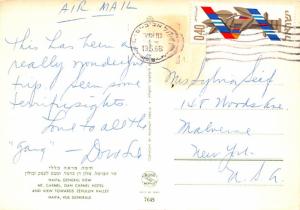 AIR MAIL
This has been a
really wonderful
trip. Seen some
terrific sights
Love to all the
"Gang" -
Miss Sylvia Seif
148 Woods Ave.
Malverne
New York
U.S.A
0.40
13.5.68
חיפה, מראה כללי
HAIFA, GENERAL VIEW
MT. CARMEL, DAN CARMEL HOTEL
AND VIEW TOWARDS ZEVULUN VALLEY
HAIFA, VUE GENERALE
7645